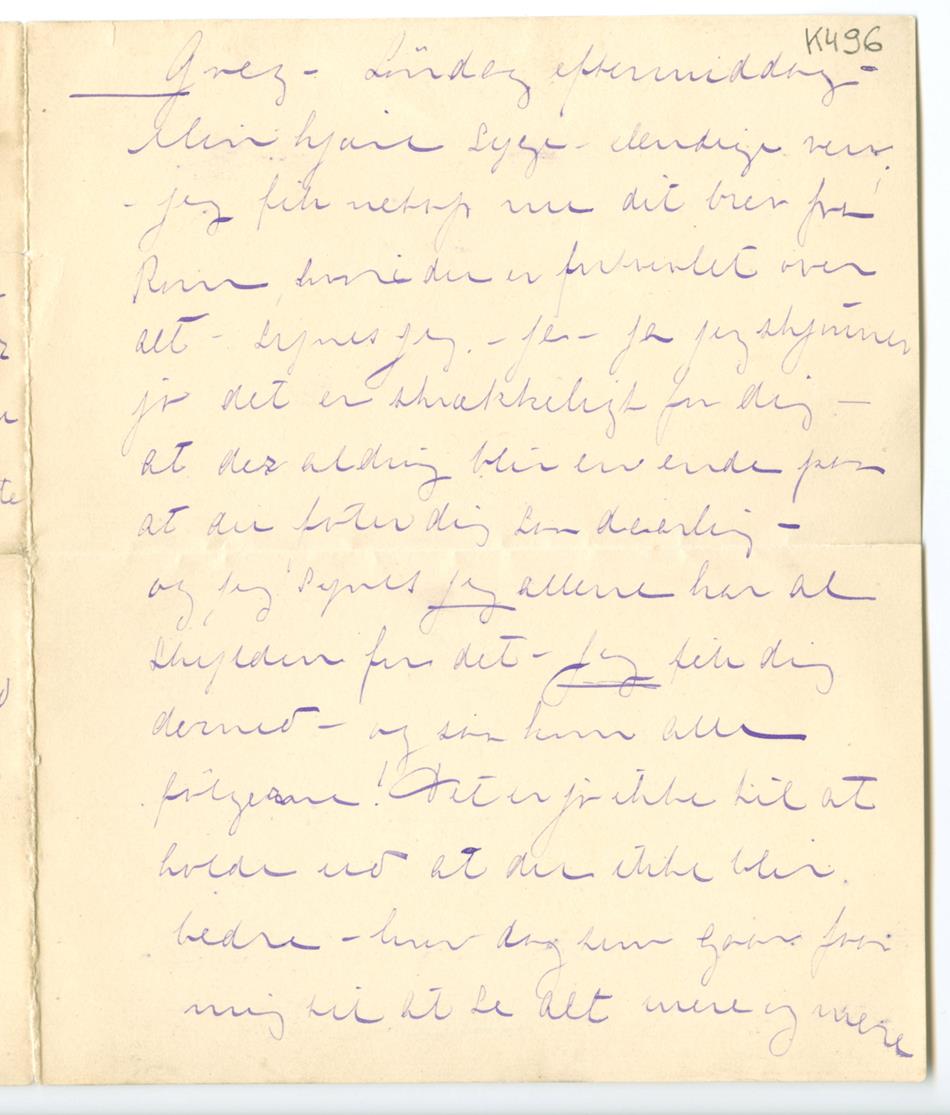 K496
Grez - Löndag eftermiddag -
Min kjære syge - elendige ven!
- jeg fik netop nu dit brev fra
Rom, hvor du er fortvivlet over
det - synes jeg. - ja - ja jeg skjønner
jo det er skrækkeligt for dig -
at der aldrig blir en ende paa
at du føler dig saa daarlig -
og jeg synes jeg allene har al
skylden for det - jeg fik dig
derned - og saa kom alle
følgerne! Det er jo ikke til at
holde ud at du ikke blir
bedre - hver dag som gaar faar
mig til at se alt mere og mere